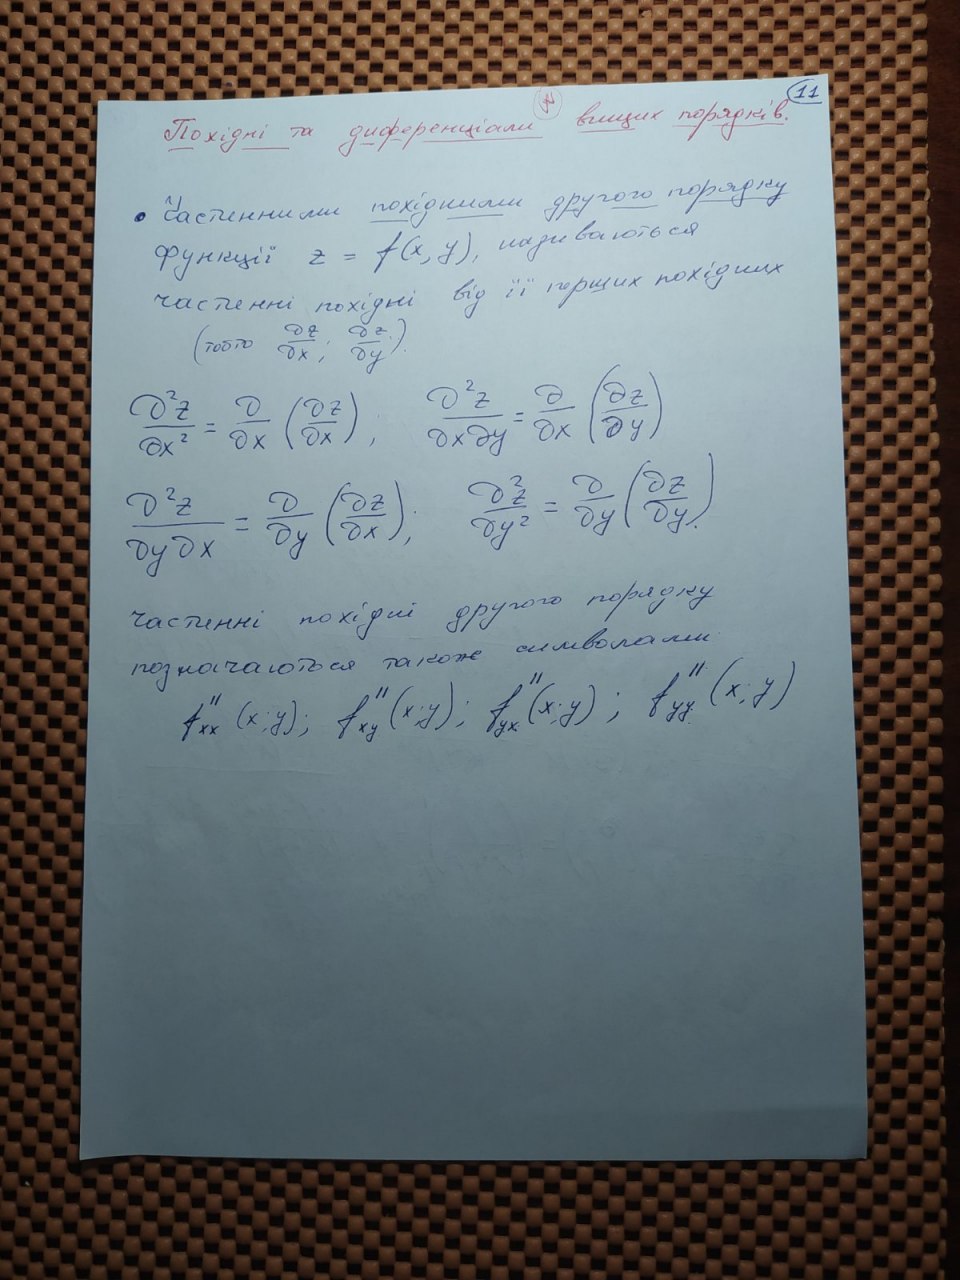 11
Похідні та диференціали вищих порядків.
• Частенними похідними другого порядку
функції z = f(x,y), називаються
частенні похідні від її перших похідних
(тобто ∂z/∂x ; ∂z/∂y).
∂²z/∂x² = ∂/∂x (∂z/∂x) ; ∂²z/∂x∂y = ∂/∂x (∂z/∂y)
∂²z/∂y∂x = ∂/∂y (∂z/∂x) ; ∂²z/∂y² = ∂/∂y (∂z/∂y).
Частенні похідні другого порядку
позначаються також символами
f''xx (x;y); f''xy (x;y); f''yx (x;y) ; f''yy (x;y)